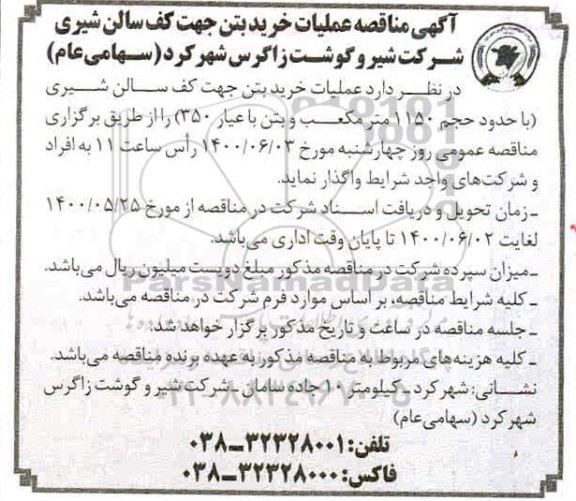 آگهی مناقصه عملیات خرید بتن جهت کف سالن شیری
شرکت شیر و گوشت زاگرس شهرکرد (سهامی عام)
در نظر دارد عملیات خرید بتن جهت کف سالن شیری
(با حدود حجم ۱۱۵۰ متر مکعب و بتن با عیار ۳۵۰) را از طریق برگزاری
مناقصه عمومی روز چهارشنبه مورخ ۱۴۰۰/۰۶/۰۳ رأس ساعت ۱۱ به افراد
و شرکت‌های واجد شرایط واگذار نماید.
ـ زمان تحویل و دریافت اسناد شرکت در مناقصه از مورخ ۱۴۰۰/۰۵/۲۵
لغایت ۱۴۰۰/۰۶/۰۲ تا پایان وقت اداری می‌باشد.
ـ میزان سپرده شرکت در مناقصه مذکور مبلغ دویست میلیون ریال می‌باشد.
ParsNamadData
ـ کلیه شرایط مناقصه، بر اساس موارد فرم شرکت در مناقصه می‌باشد.
ـ جلسه مناقصه در ساعت و تاریخ مذکور برگزار خواهد شد.
ـ کلیه هزینه‌های مربوط به مناقصه مذکور به عهده برنده مناقصه می‌باشد.
نشانی: شهرکرد ـ کیلومتر ۱۰ جاده سامان ـ شرکت شیر و گوشت زاگرس
شهرکرد (سهامی عام)
تلفن: ۳۲۳۲۸۰۰۱-۰۳۸
فاکس: ۳۲۳۲۸۰۰۰-۰۳۸